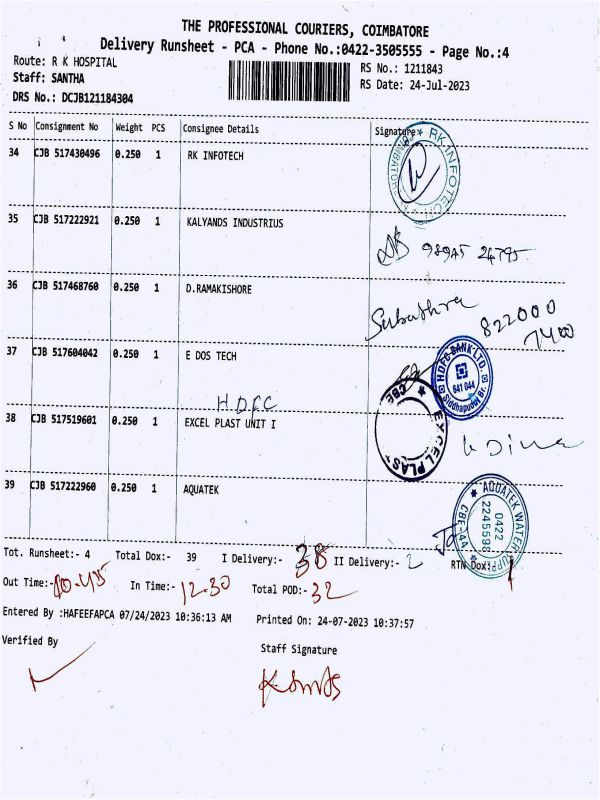 THE PROFESSIONAL COURIERS, COIMBATORE
Delivery Runsheet - PCA - Phone No.:0422-3505555 - Page No.:4
Route: R K HOSPITAL
RS No.: 1211843
Staff: SANTHA
RS Date: 24-Jul-2023
DRS No.: DCJB121184304
S No Consignment No Weight PCS Consignee Details Signature
34 CJB 517430496 0.250 1 RK INFOTECH
RK INFOTECH
35 CJB 517222921 0.250 1 KALYANDS INDUSTRIUS
98945 24795
36 CJB 517468760 0.250 1 D.RAMAKISHORE
Subathra 822000
7400
37 CJB 517604042 0.250 1 E DOS TECH
HDFC BANK LTD.
641 044
Siddhapudur Br.
HDFC
38 CJB 517519601 0.250 1 EXCEL PLAST UNIT I
EXCEL PLAST
CBE
39 CJB 517222960 0.250 1 AQUATEK
AQUATEK WATER
0422
2245598
CBE-44
Tot. Runsheet:- 4 Total Dox:- 39 I Delivery:- 38 II Delivery:- 2 RTN Dox:- 1
Out Time:-10.45 In Time:-12.30 Total POD:-32
Entered By :HAFEEFAPCA 07/24/2023 10:36:13 AM Printed On: 24-07-2023 10:37:57
Verified By
Staff Signature